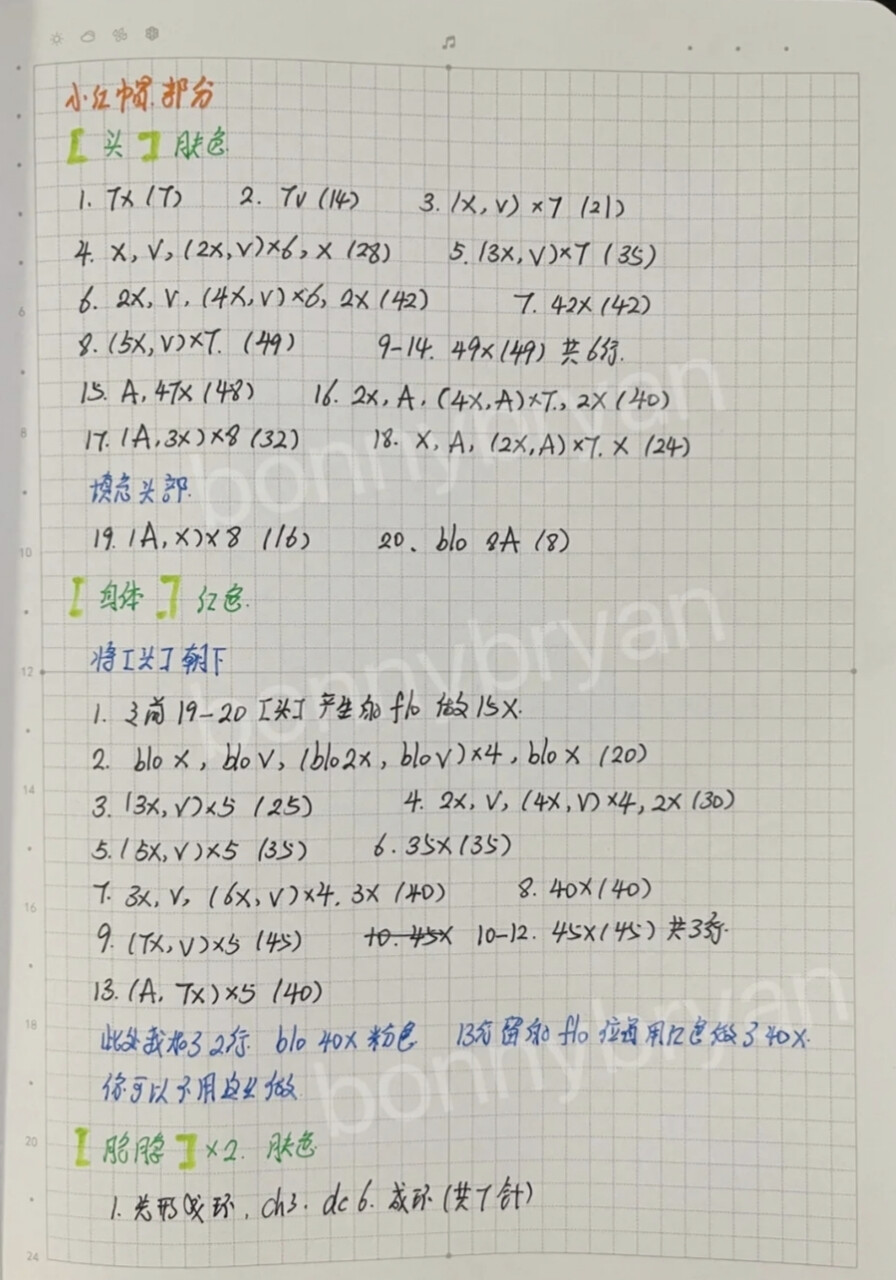 小红帽部分
【头】肤色
1. 7X (7) 2. 7V (14) 3. (X, V) ×7 (21)
4. X, V, (2X, V)×6, X (28) 5. (3X, V)×7 (35)
6. 2X, V, (4X, V)×6, 2X (42) 7. 42X (42)
8. (5X, V)×7. (49) 9-14. 49X (49) 共6行.
15. A, 47X (48) 16. 2X, A, (4X, A)×7, 2X (40)
17. (A, 3X)×8 (32) 18. X, A, (2X, A)×7. X (24)
填充头部.
19. (A, X)×8 (16) 20. blo 8A (8)
【身体】红色.
将[头]朝下
1. 之前19-20[头]产生的flo 做15X.
2. blo X, blo V, (blo2X, blo V)×4, blo X (20)
3. (3X, V)×5 (25) 4. 2X, V, (4X, V)×4, 2X (30)
5. (5X, V)×5 (35) 6. 35X (35)
7. 3X, V, (6X, V)×4. 3X (40) 8. 40X (40)
9. (7X, V)×5 (45) 10. 45X 10-12. 45X (45) 共3行.
13. (A, 7X)×5 (40)
此处我加了2行. blo 40X 粉色 13行留的flo 位置用红色做了40X.
你可以不用这么做
【胳膊】×2. 肤色
1. 成环, ch3. dc 6. 成环 (共7针)
bonnybryan
bonnybryan
bonnybryan